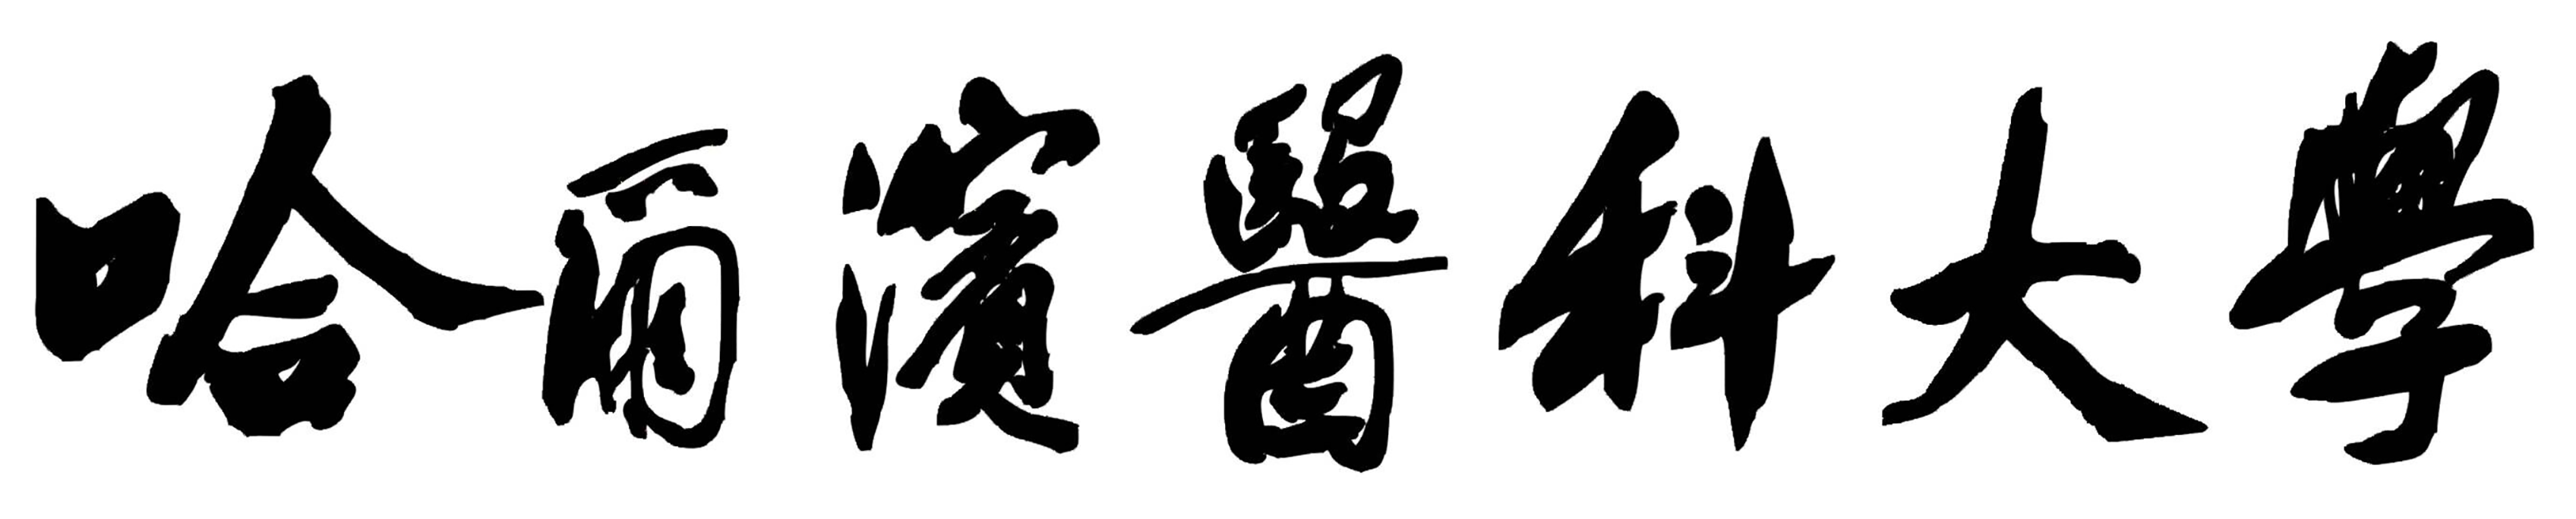 哈爾濱醫科大學